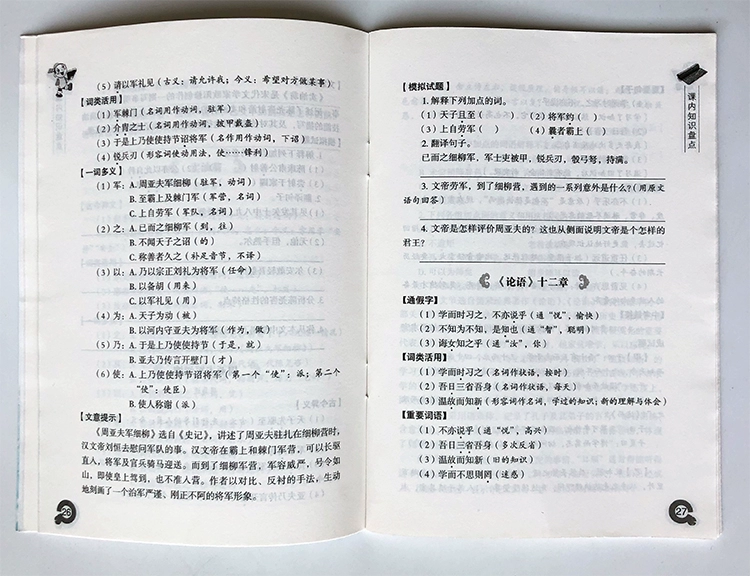 (5)请以军礼见(古义:请允许我;今义:希望对方做某事)
【词类活用】
(1)军棘门(名词用作动词,驻军)
(2)介胄之士(名词用作动词,披甲戴盔)
(3)于是上乃使使持节诏将军(名作用作动词,下诏)
(4)锐兵刃(形容词使动用法,使……锋利)
【一词多义】
(1)军:A.周亚夫军细柳(驻军,动词)
B.至霸上及棘门军(军营,名词)
C.上自劳军(军队,名词)
(2)之:A.已而之细柳军(到,往)
B.不闻天子之诏(的)
C.称善者久之(补足音节,不译)
(3)以:A.乃以宗正刘礼为将军(任命)
B.以备胡(用来)
C.以军礼见(用)
(4)为:A.天子为动(被)
B.以河内守亚夫为将军(作为,做)
(5)乃:A.于是上乃使使持节(于是,就)
B.亚夫乃传言开壁门(才)
(6)使:A.上乃使使持节诏将军(第一个“使”:派;第二个
“使”:使臣)
B.使人称谢(派)
【文意提示】
《周亚夫军细柳》选自《史记》,讲述了周亚夫驻扎在细柳营时,
汉文帝刘恒去慰问军队的事。汉文帝在霸上和棘门军营,可以长驱
直入,将军及官兵骑马迎送。而到了细柳军营,军容威严,号令如
山,即使皇上驾到,也不准入营。作者以对比、反衬的手法,生动
地刻画了一个治军严谨、刚正不阿的将军形象。
26
课内知识盘点
【模拟试题】
1.解释下列加点的词。
(1)天子且至( ) (2)将军约( )
(3)上自劳军( ) (4)曩者霸上( )
2.翻译句子。
已而之细柳军,军士吏被甲,锐兵刃,彀弓弩,持满。
3.文帝劳军,到了细柳营,遇到的一系列意外是什么?(用原文
语句回答)
4.文帝是怎样评价周亚夫的?这也从侧面说明文帝是个怎样的
君王?
《论语》十二章
【通假字】
(1)学而时习之,不亦说乎(通“悦”,愉快)
(2)不知为不知,是知也(通“智”,聪明)
(3)诲女知之乎(通“汝”,你)
【词类活用】
(1)学而时习之(名词作状语,按时)
(2)吾日三省吾身(名词作状语,每天)
(3)温故而知新(形容词作名词,学过的知识;新的理解与体会)
【重要词语】
(1)不亦说乎(通“悦”,高兴)
(2)吾日三省吾身(多次反省)
(3)温故而知新(旧的知识)
(4)学而不思则罔(迷惑)
27